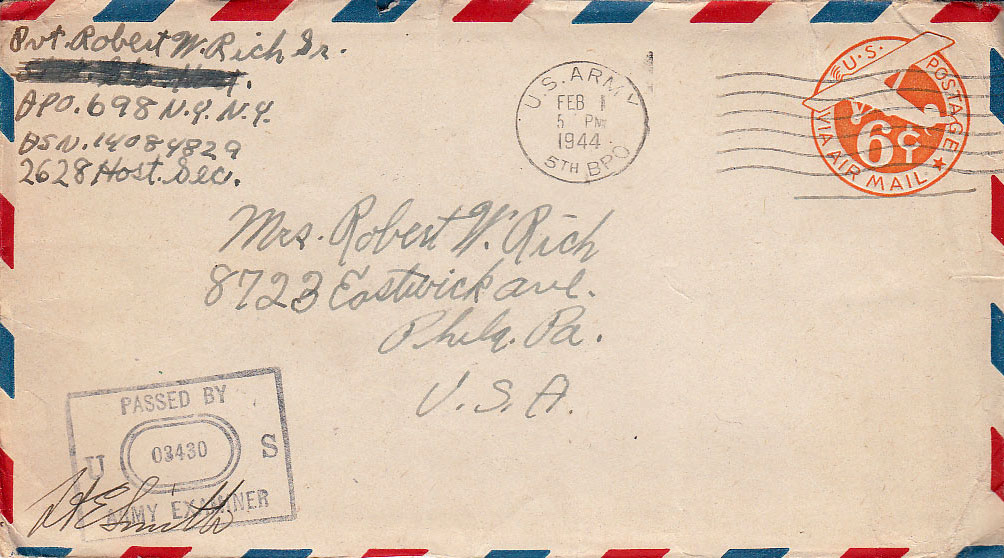 Pvt. Robert W. Rich Sr.
APO. 698 N.Y. N.Y.
ASN. 14084829
2628 Host. Sec.
U.S. ARMY
FEB 1
5 PM
1944
5TH BPO
U.S. POSTAGE
6¢
VIA AIR MAIL
Mrs. Robert W. Rich
8723 Eastwick ave.
Phila. Pa.
U.S.A.
PASSED BY
U 03430 S
ARMY EXAMINER
Smith